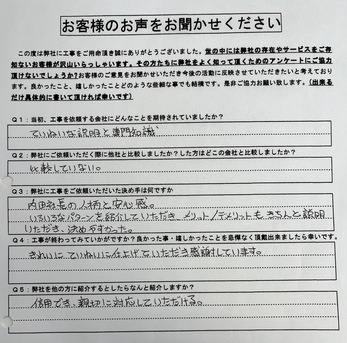 お客様のお声をお聞かせください
この度は弊社に工事をご用命頂き誠にありがとうございました。世の中には弊社の存在やサービスをご存知ないお客様が沢山いらっしゃいます。その方たちに弊社をよく知って頂くためのアンケートにご協力頂けないでしょうか?お客様のご意見をお聞かせいただき今後の活動に反映させていただきたいと考えております。良かったこと、嬉しかったことどのような些細な事でも結構です。是非ご協力お願い致します。(出来るだけ具体的に書いて頂ければ幸いです)
Q1:当初、工事を依頼する会社にどんなことを期待されていましたか?
ていねいな説明と専門知識
Q2:弊社にご依頼いただく際に他社と比較しましたか?した方はどこの会社と比較しましたか?
比較していない。
Q3:弊社に工事をご依頼いただいた決め手は何ですか
内田社長の人柄と安心感。
いろいろなパターンを紹介していただき、メリット/デメリットもきちんと説明
いただき、決めやすかった。
Q4:工事が終わってみていかがですか?良かった事・嬉しかったことを忌憚なく頂戴出来ましたら幸いです。
きれいにていねいに仕上げていただき感謝しています。
Q5:弊社を他の方に紹介するとしたらなんと紹介しますか?
信用でき、親切に対応していただける。